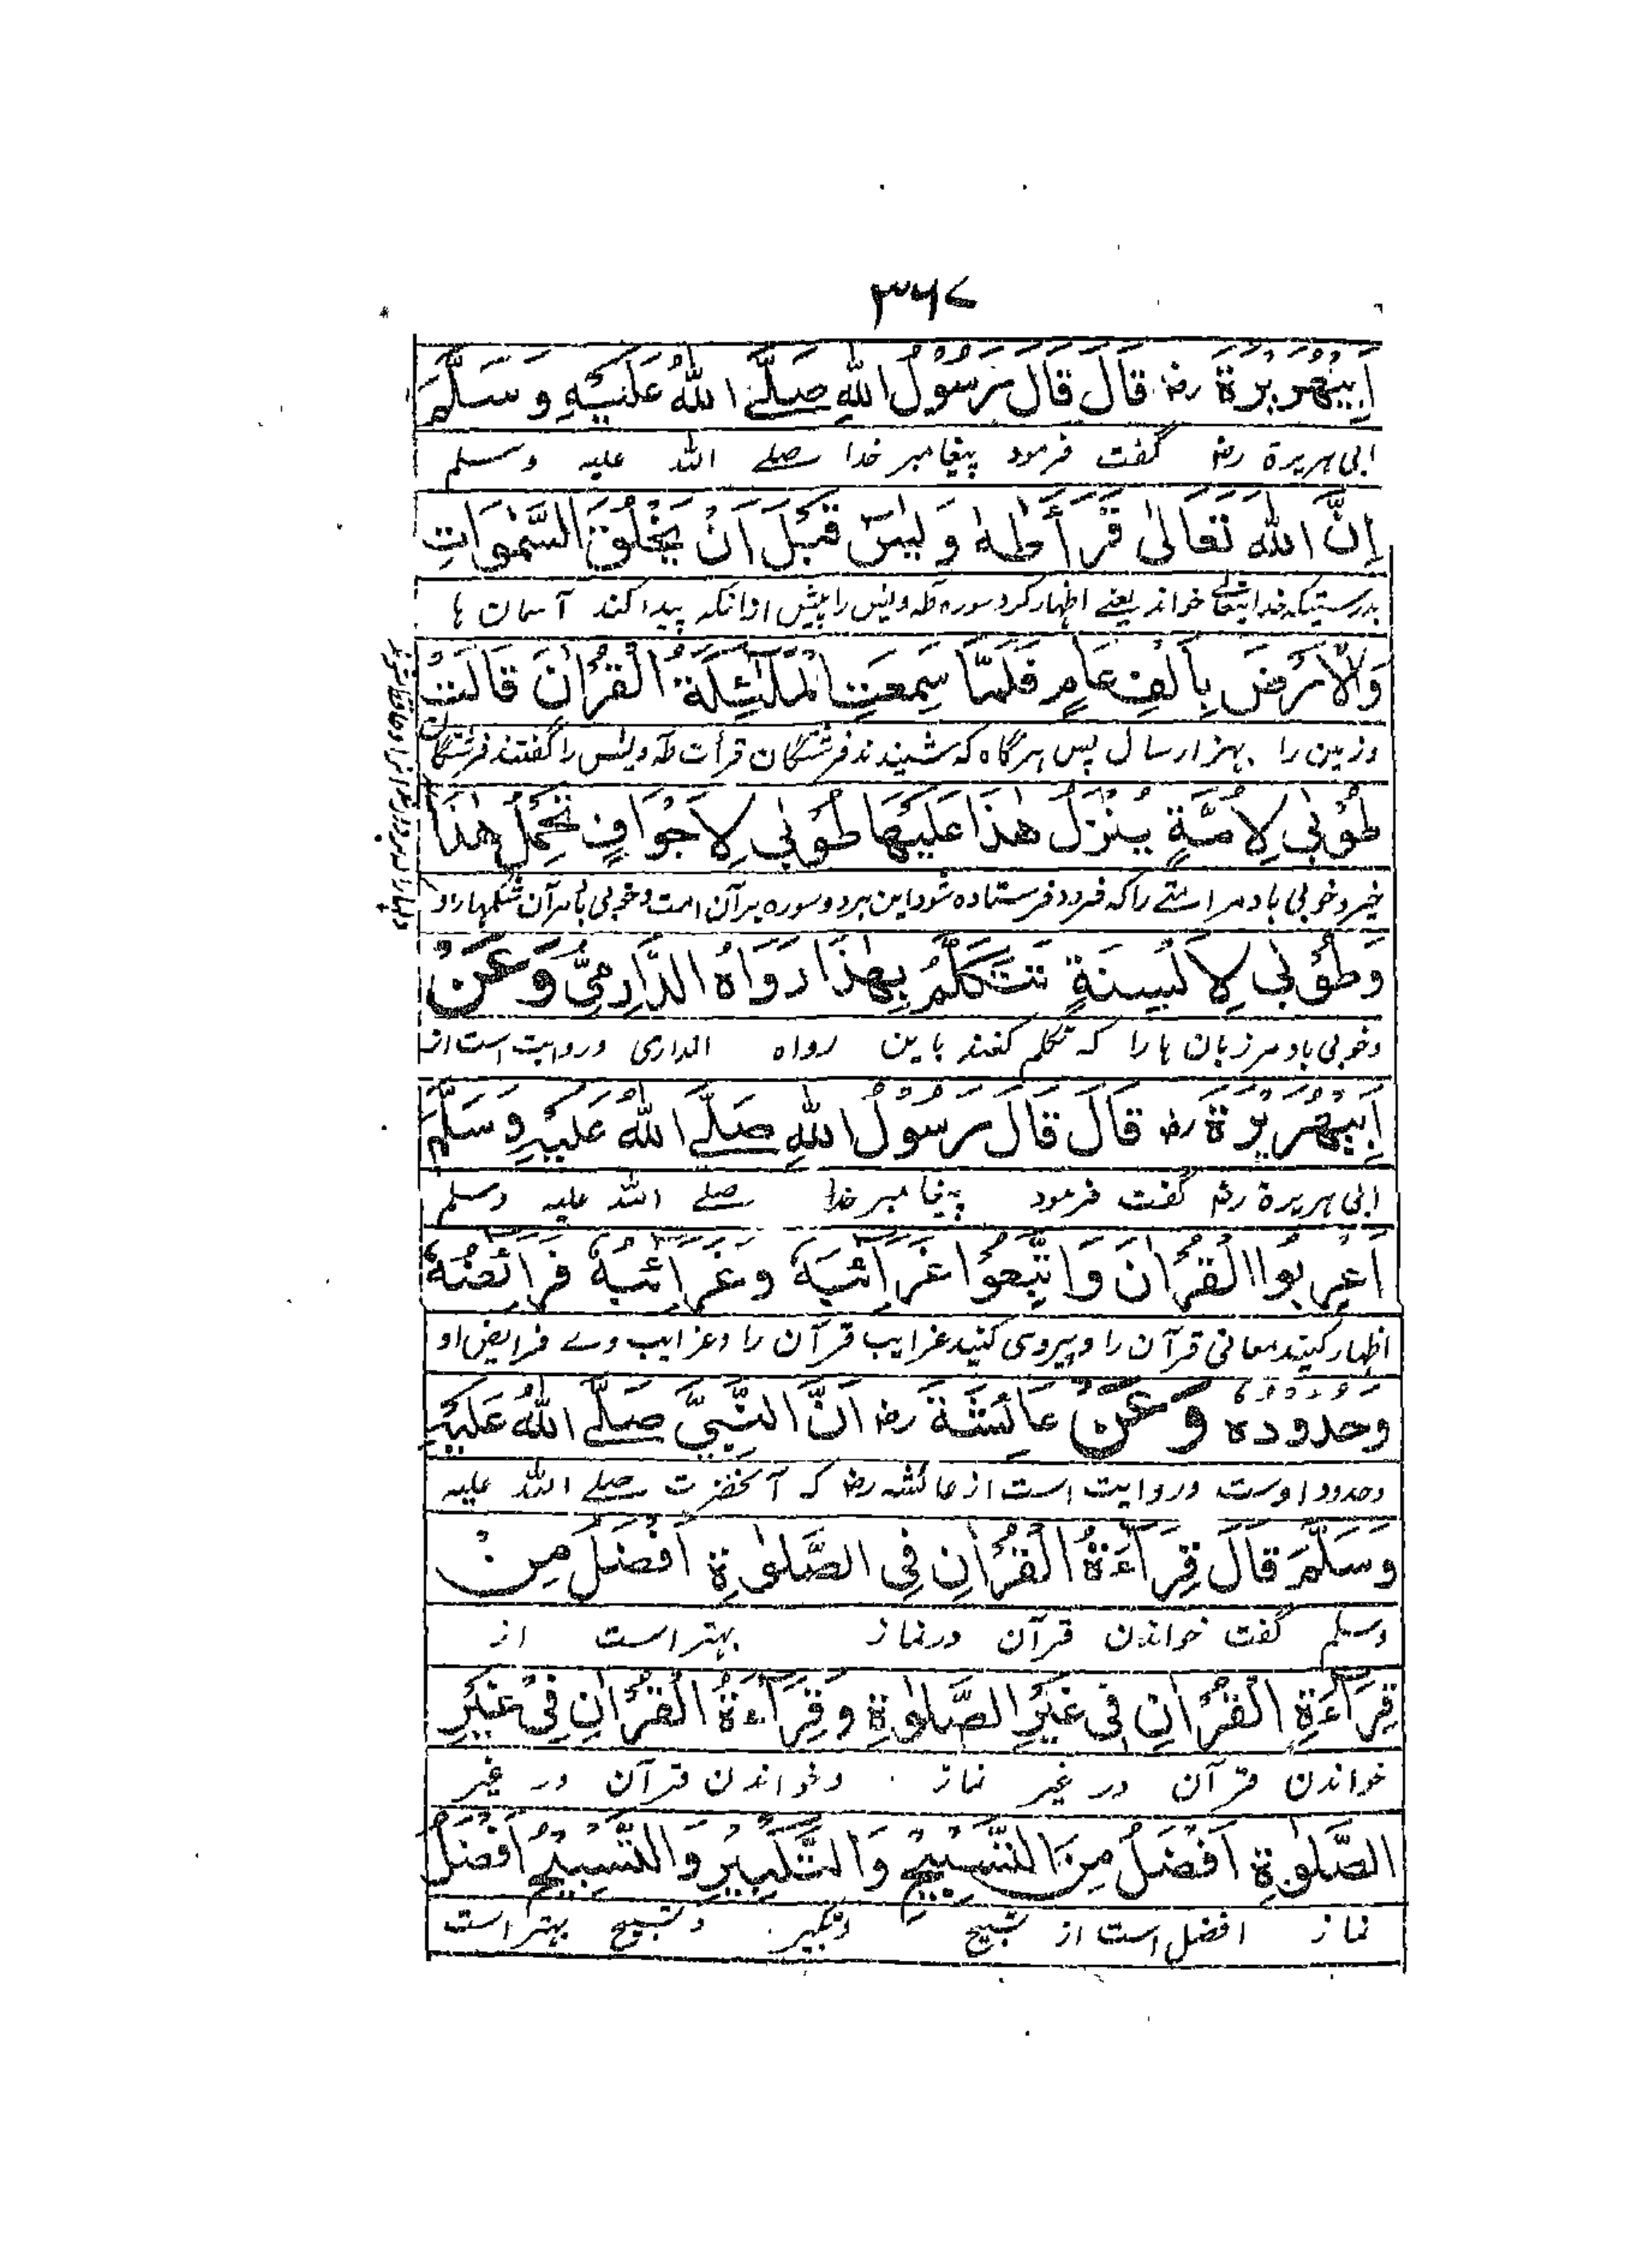 ۳۶۷
اَبِيْهُرَيْرَةَ رض قَالَ قَالَ رَسُوْلُ اللّٰهِ صَلَّے اللّٰهُ عَلَيْهِ وَسَلَّمَ
ابی ہریرة رض گفت فرمود پیغامبر خدا صلے اللہ علیہ وسلم
اِنَّ اللّٰهَ تَعَالٰى قَرَأَ طٰهٰ وَ يٰسٓ قَبْلَ اَنْ يَخْلُقَ السَّمٰوَاتِ
بدرستیکہ خدایتعالے خواند یعنے اظہار کرد سورہ طہ ویس را پیش ازانکہ پیدا کند آسمان ہا
وَالْاَرْضَ بِاَلْفِ عَامٍ فَلَمَّا سَمِعَتِ الْمَلٰٓئِكَةُ الْقُرْاٰنَ قَالَتْ
وزمین را بہزار سال پس ہرگاہ کہ شنیدند فرشتگان قرأت طہ ویس را گفتند فرشتگان
طُوْبٰى لِاُمَّةٍ يُنْزَلُ هٰذَا عَلَيْهَا طُوْبٰى لِاَجْوَافٍ تَحْمِلُ هٰذَا
خیر وخوبی باد مر امتے را کہ فرود فرستادہ شود این ہردو سورہ بر آن امت وخوبی باد مرآن شکمہارا
وَطُوْبٰى لِاَلْسِنَةٍ تَتَكَلَّمُ بِهٰذَا رَوَاهُ الدَّارِمِىُّ وَعَنْ
وخوبی باد مرزبان ہا را کہ تکلم کنند باین رواہ الدارمی وروایت است از
اَبِيْهُرَيْرَةَ رض قَالَ قَالَ رَسُوْلُ اللّٰهِ صَلَّے اللّٰهُ عَلَيْهِ وَسَلَّمَ
ابی ہریرة رض گفت فرمود پیغامبر خدا صلے اللہ علیہ وسلم
اَعْرِبُوا الْقُرْاٰنَ وَاتَّبِعُوْا غَرَآئِبَهٗ وَغَرَآئِبُهٗ فَرَآئِضُهٗ
اظہار کنید معانی قرآن را وپیروی کنید غرایب قرآن را وغرایب وے فرایض او
وَحُدُوْدُهٗ وَعَنْ عَائِشَةَ رض اَنَّ النَّبِىَّ صَلَّے اللّٰهُ عَلَيْهِ
وحدود اوست وروایت است از عائشہ رض کہ آنحضرت صلے اللہ علیہ
وَسَلَّمَ قَالَ قِرَآءَةُ الْقُرْاٰنِ فِى الصَّلٰوةِ اَفْضَلُ مِنْ
وسلم گفت خواندن قرآن درنماز بہتر است از
قِرَآءَةِ الْقُرْاٰنِ فِى غَيْرِ الصَّلٰوةِ وَقِرَآءَةُ الْقُرْاٰنِ فِىْ غَيْرِ
خواندن قرآن در غیر نماز وخواندن قرآن در غیر
الصَّلٰوةِ اَفْضَلُ مِنَ التَّسْبِيْحِ وَالتَّكْبِيْرِ وَالتَّسْبِيْحُ اَفْضَلُ
نماز افضل است از تسبیح وتکبیر وتسبیح بہتر است